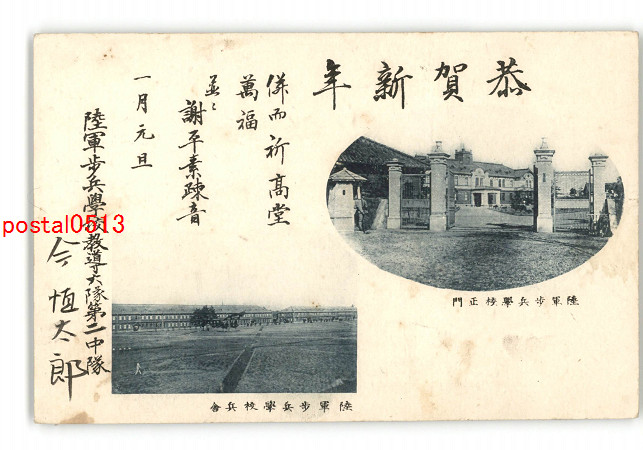 恭賀新年
併而祈高堂
萬福
並ニ謝平素疎音
一月元旦
陸軍步兵學校教導大隊第二中隊
今恒太郎
陸軍步兵學校正門
陸軍步兵學校兵舎
postal0513